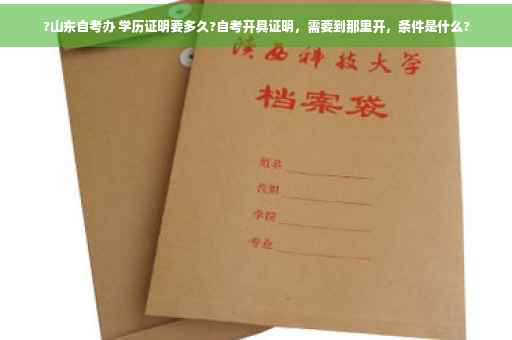 ?山东自考办 学历证明要多久?自考开具证明，需要到那里开，条件是什么?
陕西科技大学
档案袋
姓名
学院
专业